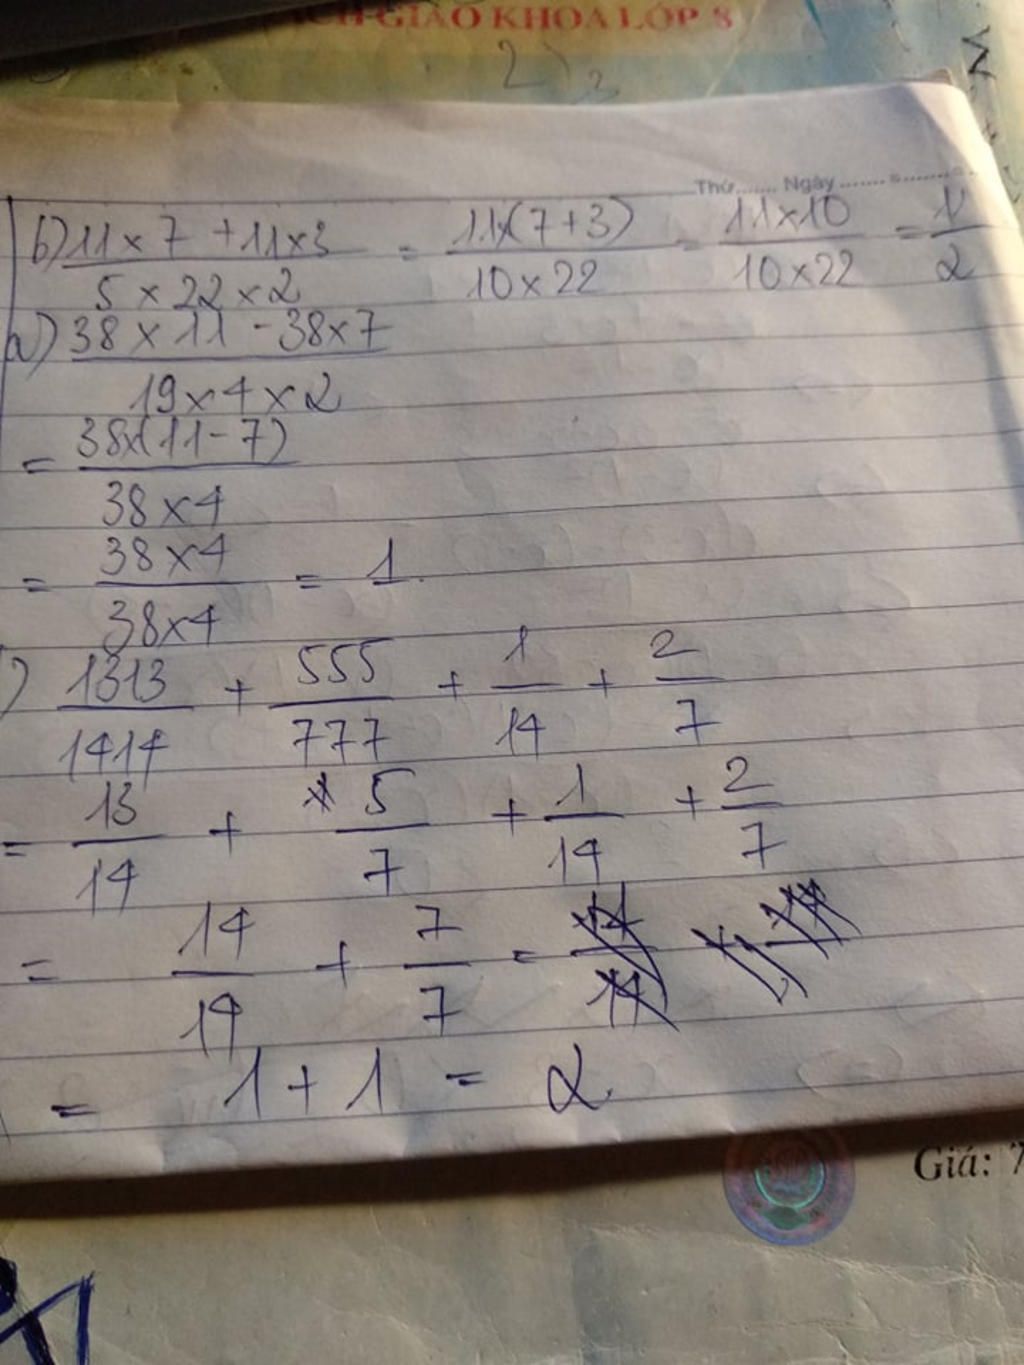 SÁCH GIÁO KHOA LỚP 8
2) 2
Thứ....... Ngày.......
b) 11 x 7 + 11 x 3 / 5 x 22 x 2 = 11x(7+3) / 10 x 22 = 11 x 10 / 10 x 22 = 1 / 2
a) 38 x 11 - 38 x 7 / 19 x 4 x 2
= 38x(11-7) / 38 x 4
= 38 x 4 / 38 x 4 = 1.
) 1313 / 1414 + 555 / 777 + 1 / 14 + 2 / 7
= 13 / 14 + 5 / 7 + 1 / 14 + 2 / 7
= 14 / 14 + 7 / 7 =
= 1 + 1 = 2.
Giá: 7